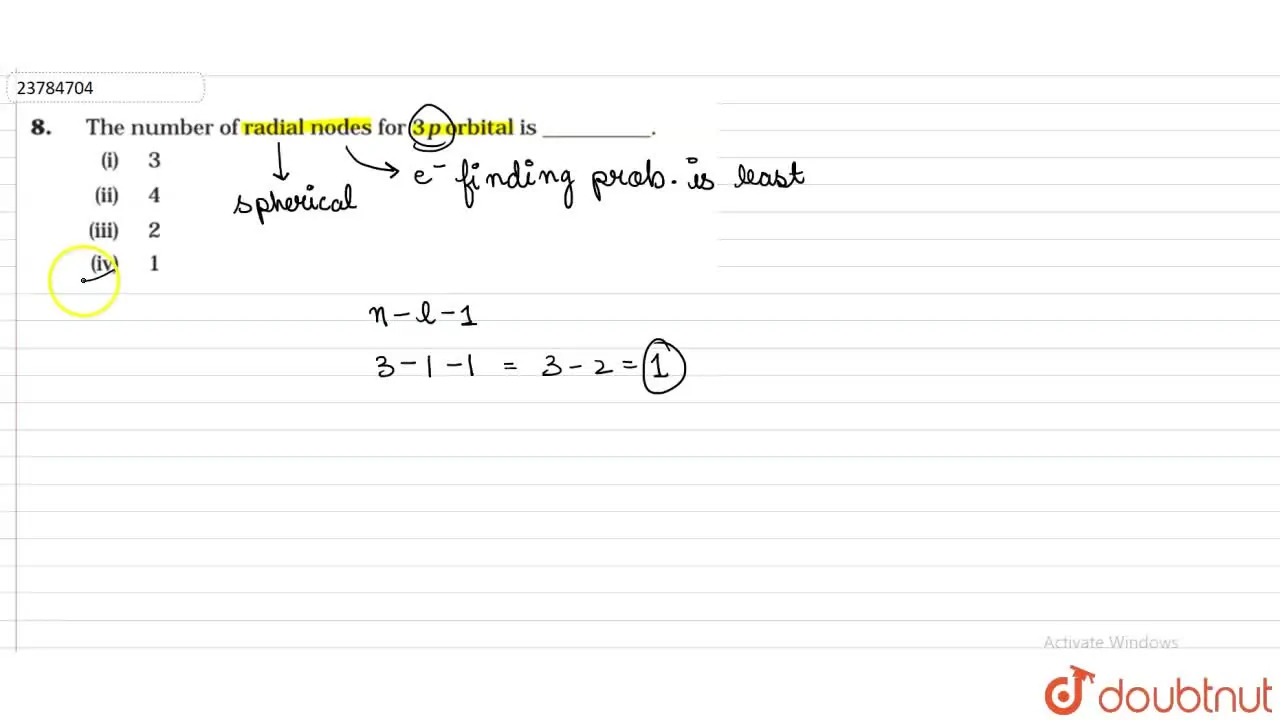 23784704
8. The number of radial nodes for 3p orbital is __________.
(i) 3
(ii) 4
(iii) 2
(iv) 1
spherical
e⁻ finding prob. is least
n - l - 1
3 - 1 - 1 = 3 - 2 = 1
Activate Windows
doubtnut